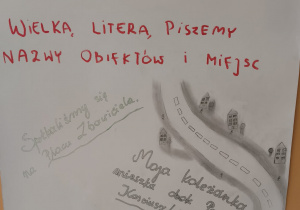 WIELKĄ LITERĄ PISZEMY
NAZWY OBIEKTÓW I MIEJSC
Spotkaliśmy się
na Placu Zbawiciela.
Moja koleżanka
mieszka obok